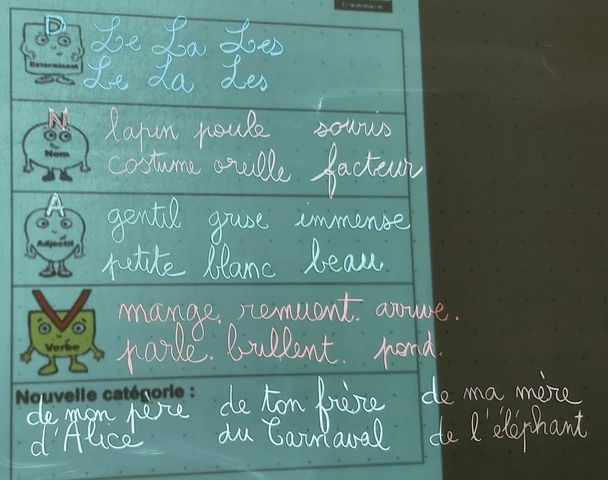 Grammaire
D Le La Les
Determinant Le La Les
N lapin poule souris
Nom costume oreille facteur
A gentil grise immense
Adjectif petite blanc beau
mange. remuent. arrive.
Verbe parle. brillent. pond.
Nouvelle catégorie :
de mon père de ton frère de ma mère
d'Alice du Carnaval de l'éléphant